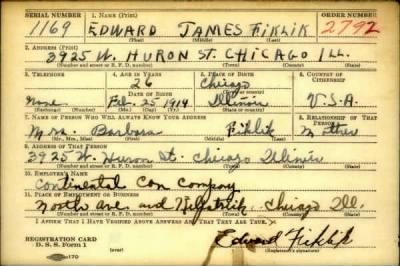 SERIAL NUMBER 1. NAME (Print) ORDER NUMBER
1169 EDWARD JAMES FIKLIK 2792
(First) (Middle) (Last)
2. ADDRESS (Print)
3925 W. HURON ST. CHICAGO ILL.
(Number and street or R. F. D. number) (Town) (County) (State)
3. TELEPHONE 4. AGE IN YEARS 5. PLACE OF BIRTH 6. COUNTRY OF CITIZENSHIP
26 Chicago
DATE OF BIRTH (Town or county)
None Feb. 25 1914 Illinois U.S.A.
(Exchange) (No.) (Mo.) (Day) (Yr.) (State or country)
7. NAME OF PERSON WHO WILL ALWAYS KNOW YOUR ADDRESS 8. RELATIONSHIP OF THAT PERSON
Mrs. Barbara Fiklik Mother
(Mr., Mrs., Miss) (First) (Middle) (Last)
9. ADDRESS OF THAT PERSON
3925 W. Huron St. Chicago Illinois
(Number and street or R. F. D. number) (Town) (County) (State)
10. EMPLOYER'S NAME
Continental Can Company
11. PLACE OF EMPLOYMENT OR BUSINESS
North Ave. and Kilpatrik. Chicago Ill.
(Number and street or R. F. D. number) (Town) (County) (State)
I AFFIRM THAT I HAVE VERIFIED ABOVE ANSWERS AND THAT THEY ARE TRUE.
REGISTRATION CARD Edward Fiklik
D. S. S. Form 1 (over) (Registrant's signature)